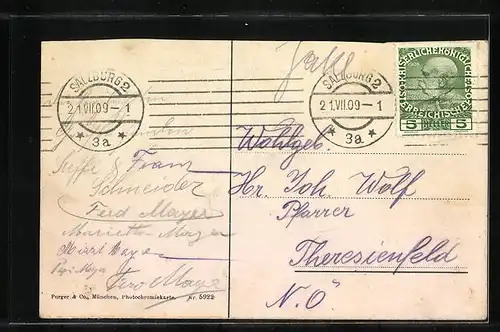 SALZBURG 2
21.VII.09-1
* 3a *
SALZBURG 2
21.VII.09-1
* 3a *
KAISERLICHE KÖNIGLICHE
ÖSTERREICHISCHE
5 5
Steffi & Franz
Schneider
Ferd Mayer
Marietta Mayer
Mizzi Mayer
Pepi Mayer
Mayr
Wohlgeb.
Hr. Joh. Wolf
Pfarrer
Theresienfeld
N. Ö
Purger & Co., München, Photochromiekarte. Nr. 5922